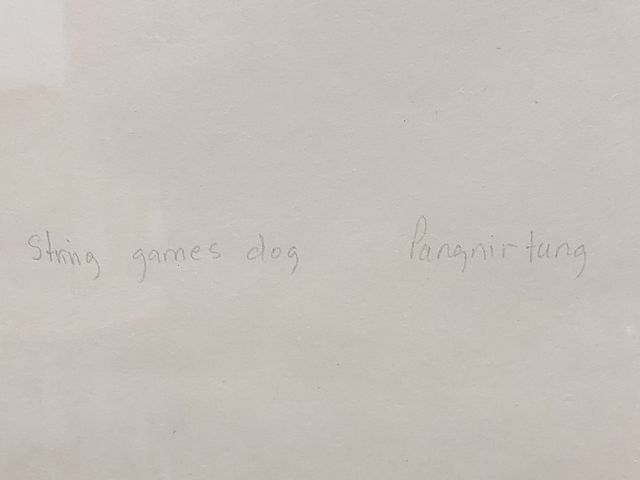 String games dog Pangnirtung